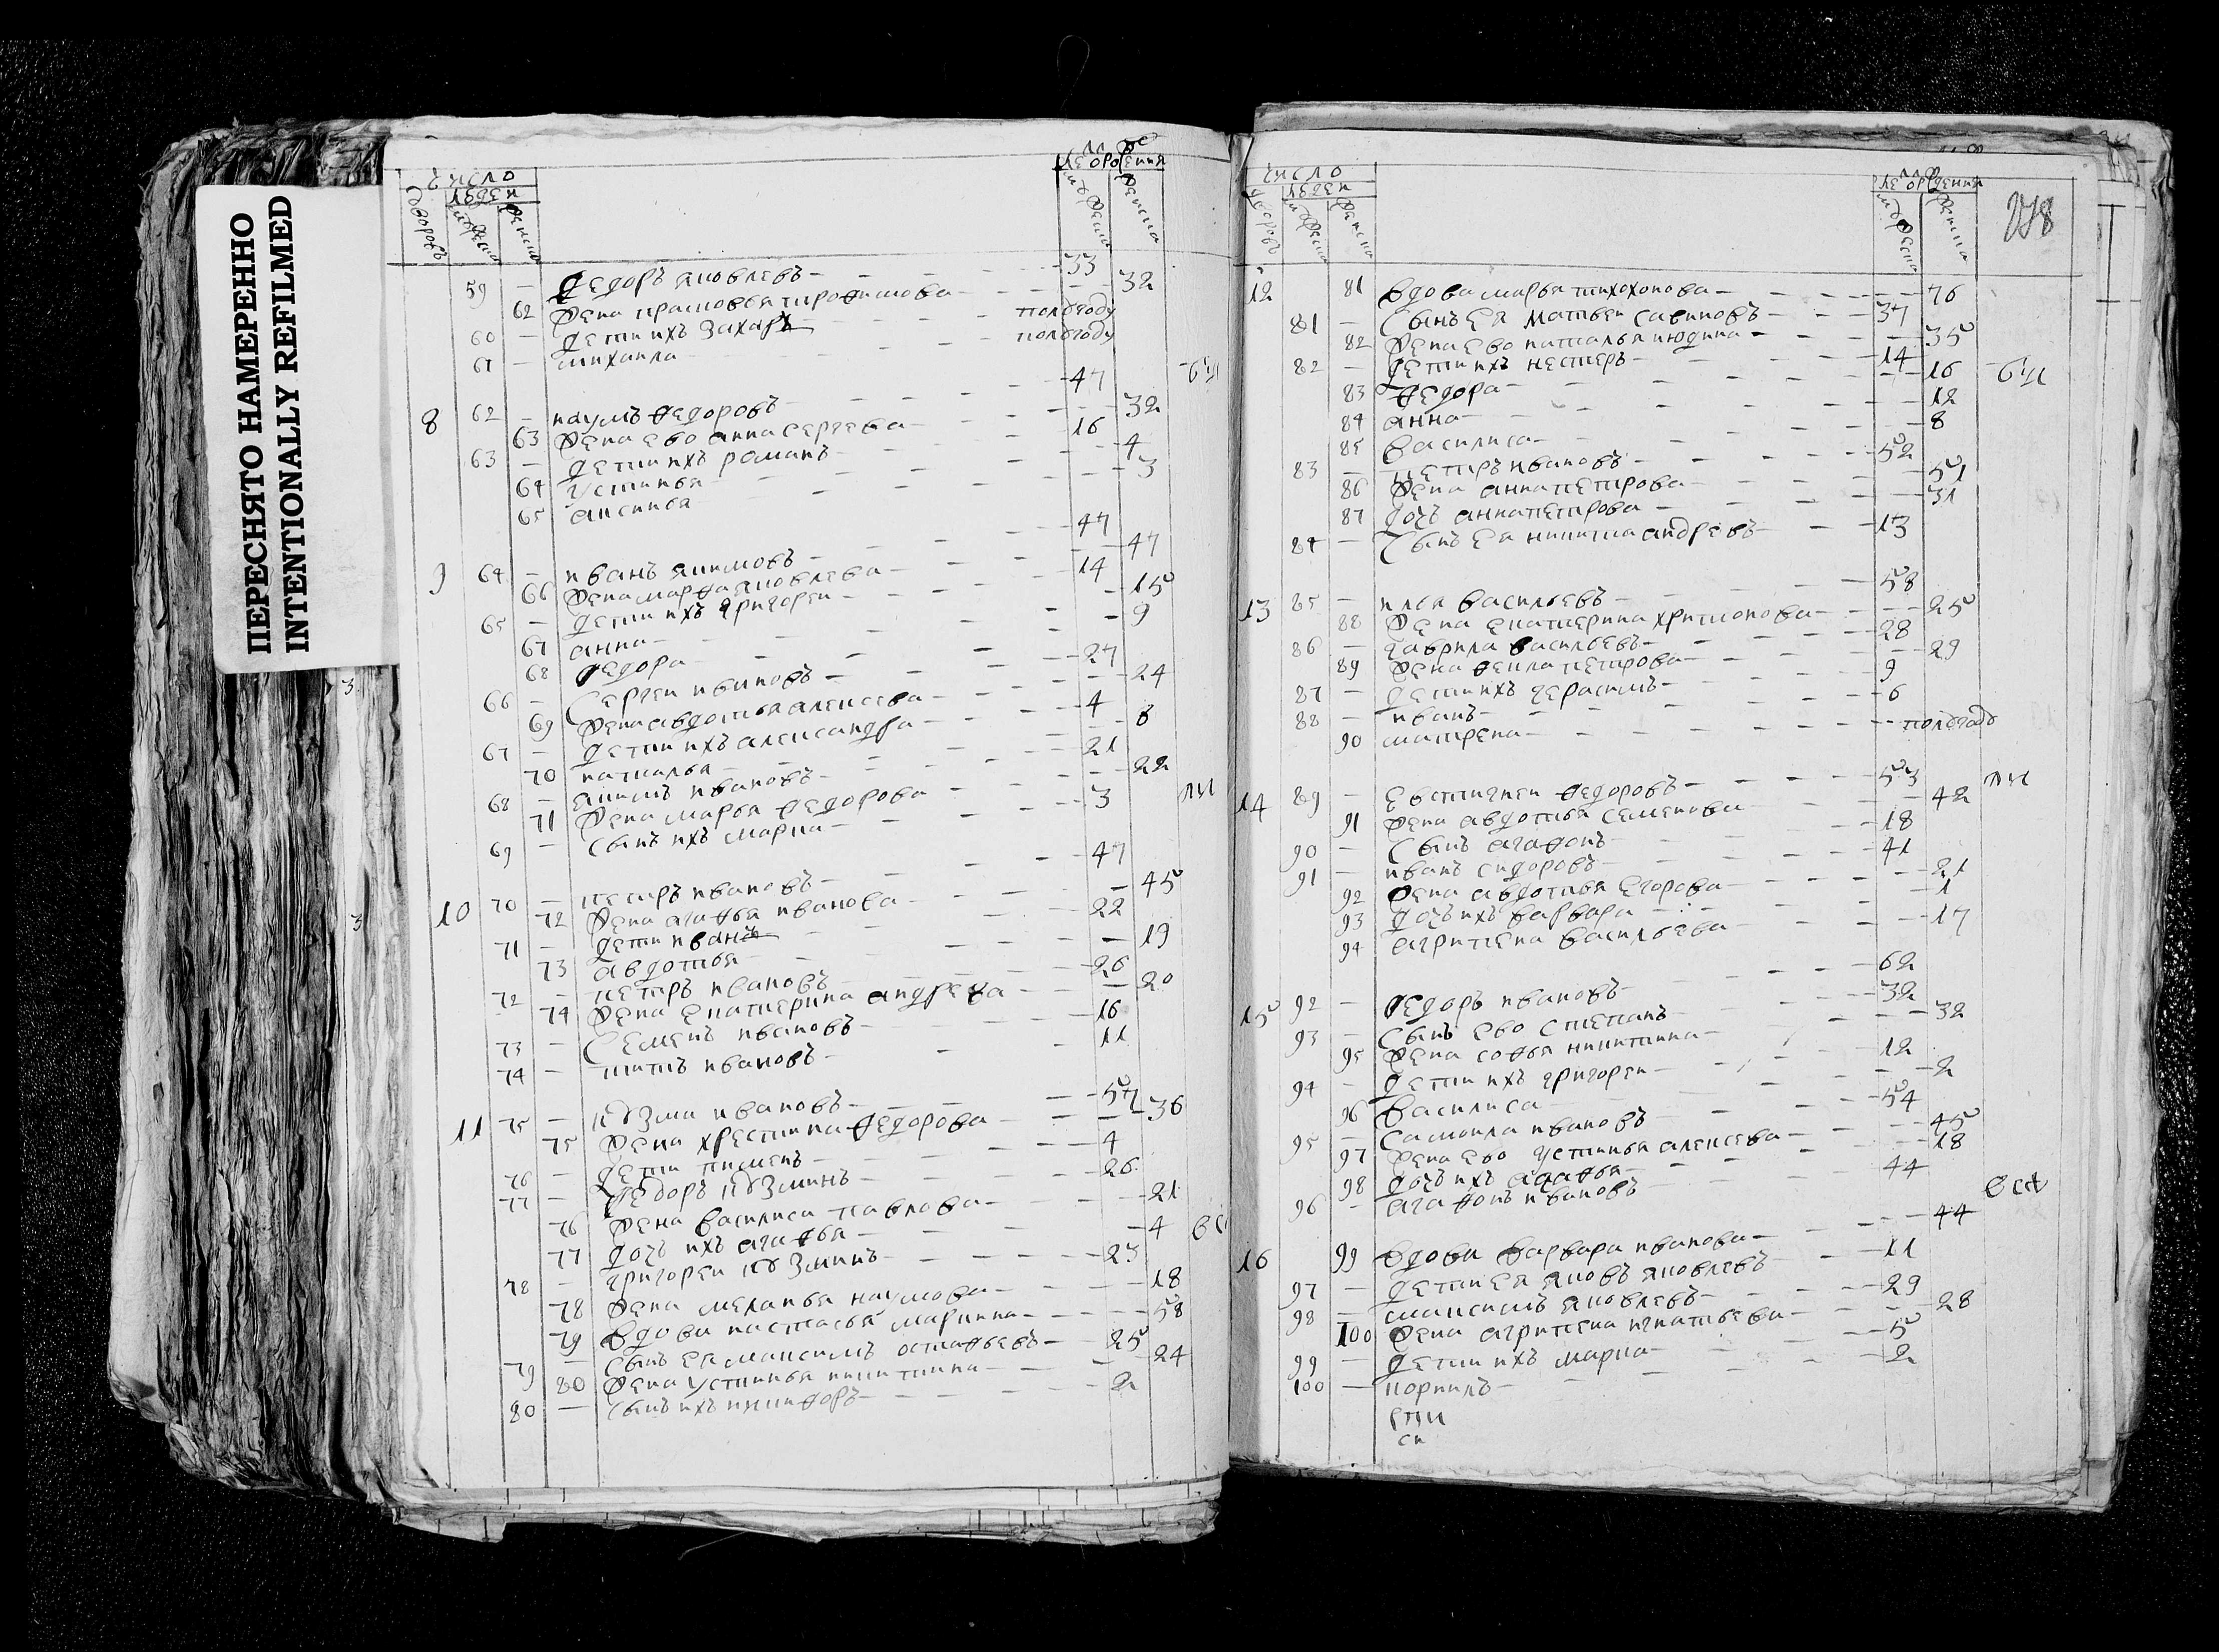 ПЕРЕСНЯТО НАМЕРЕННО
INTENTIONALLY REFILMED
число людей
дворовъ мужеска женска
мужеска женска
59 — Федоръ яковлевъ — 33
62 жена прасковья трофимова — 32
60 — дети ихъ захаръ — полбгоду
61 — михаила — полбгоду
8 62 — наумъ федоровъ — 47
63 жена ево анна сергева — 32
63 — дети ихъ романъ — 16
64 устинья — 4
65 аксинья — 3
9 64 — иванъ якимовъ — 47
66 жена марфа яковлева — 47
65 — дети ихъ григореи — 14
67 анна — 15
68 федора — 9
66 — Сергеи ивановъ — 27
69 жена авдотья алексева — 24
67 — дети ихъ александра — 4
70 наталья — 8
68 — якимъ ивановъ — 21
71 жена марья федорова — 22
69 — сынъ ихъ марка — 3
10 70 — петръ ивановъ — 47
72 жена агафья иванова — 45
71 — дети иванъ — 22
73 авдотья — 19
72 — петръ ивановъ — 26
74 жена екатерина андрева — 20
73 — Семенъ ивановъ — 16
74 — титъ ивановъ — 11
11 75 — кузма ивановъ — 57
75 жена хрестина федорова — 36
76 — дети пименъ — 4
77 — федоръ кузминъ — 26
76 жена василиса павлова — 21
77 дочь ихъ агафья — 4
78 — григореи кузминъ — 23
78 жена меланья наумова — 18
79 вдова настасья маркина — 58
79 — сынъ ея максимъ остафьевъ — 25
80 жена устинья никитина — 24
80 — сынъ ихъ никифоръ — 2
число людей
дворовъ мужеска женска
мужеска женска
12 81 вдова марья тихохонова — 76
81 — Сынъ ея матвеи савиновъ — 37
82 жена ево наталья июдина — 35
82 — дети ихъ нестеръ — 14
83 федора — 16
84 анна — 12
85 василиса — 8
83 — петръ ивановъ — 52
86 жена анна петрова — 51
87 дочь анна петрова — 31
84 — Сынъ ея никита андревъ — 13
13 85 — илья васильевъ — 58
88 жена екатерина хритонова — 25
86 — гаврила васильевъ — 28
89 жена фекла петрова — 29
87 — дети ихъ герасимъ — 9
88 — иванъ — 6
90 матрена — полбгоду
14 89 — евстигнеи федоровъ — 53
91 жена авдотья семенова — 42
90 — Сынъ агафонъ — 18
91 — иванъ сидоровъ — 41
92 жена авдотья егорова — 21
93 дочь ихъ варвара — 1
94 агрипена васильева — 17
15 92 — федоръ ивановъ — 62
93 — Сынъ ево степанъ — 32
95 жена софья никитина — 32
94 — дети ихъ григореи — 12
96 василиса — 2
95 — самоила ивановъ — 54
97 жена ево устинья алексева — 45
98 дочь ихъ агафья — 18
96 — агафонъ ивановъ — 44
16 99 вдова варвара иванова — 44
97 — дети ея яковъ яковлевъ — 11
98 — максимъ яковлевъ — 29
100 жена агрипена игнатьева — 28
99 — дети ихъ марка — 5
100 — корнилъ — 2